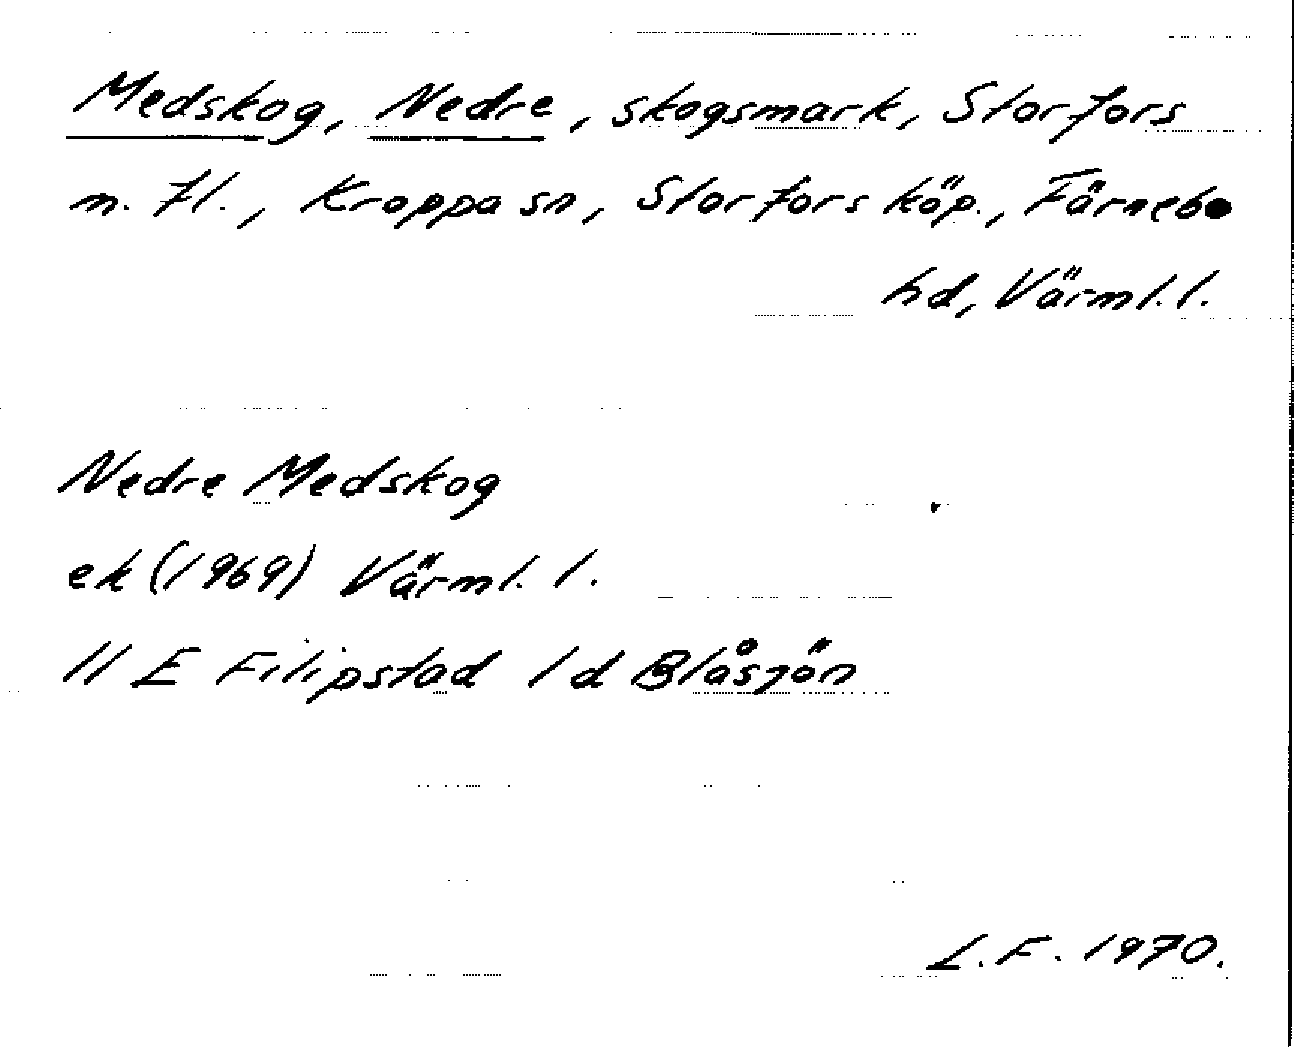 Medskog, Nedre, skogsmark, Storfors
m. fl., Kroppa sn, Storfors köp., Färnebo
hd, Värml. l.
Nedre Medskog
ek (1969) Värml. l.
11 E Filipstad 1 d Blåsjön
L.F. 1970.